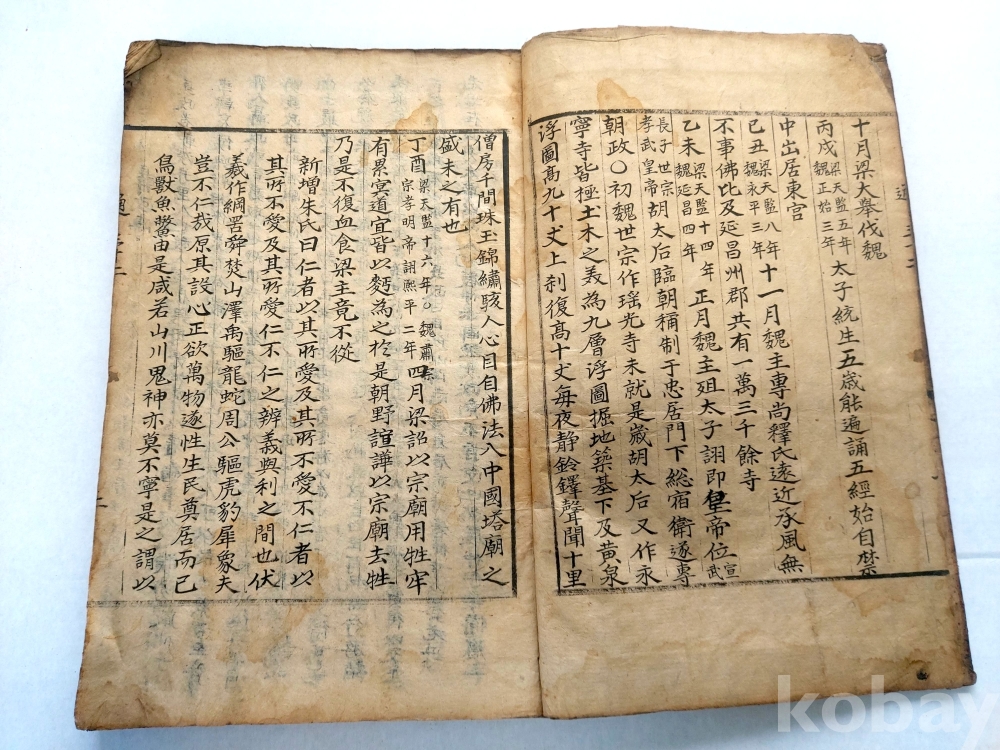 十月梁大擧伐魏
丙戌梁天監五年魏正始三年太子統生五歲能遍誦五經始自禁
中出居東宮
己丑梁天監八年魏永平三年十一月魏主專尚釋氏遠近承風無
不事佛比及延昌州郡共有一萬三千餘寺
乙未梁天監十四年魏延昌四年正月魏主殂太子詡即皇帝位宣武
長子世宗孝武皇帝胡太后臨朝稱制于忠居門下総宿衛遂專
朝政〇初魏世宗作瑶光寺未就是歲胡太后又作永
寧寺皆極土木之美為九層浮圖掘地築基下及黃泉
浮圖高九十丈上刹復高十丈每夜静鈴鐸聲聞十里
僧房千間珠玉錦繡駭人心目自佛法入中國塔廟之
盛未之有也
丁酉梁天監十六年〇魏肅宗宗孝明帝詡熙平二年四月梁詔以宗廟用牲牢
有累冥道宜皆以麪為之於是朝野諠譁以宗廟去牲
乃是不復血食梁主竟不從
新增朱氏曰仁者以其所愛及其所不愛不仁者以
其所不愛及其所愛仁不仁之辨義與利之間也伏
羲作綱罟舜焚山澤禹驅龍蛇周公驅虎豹犀象夫
豈不仁哉原其設心正欲萬物遂性生民奠居而已
鳥獸魚鱉由是咸若山川鬼神亦莫不寧是之謂以
kobay